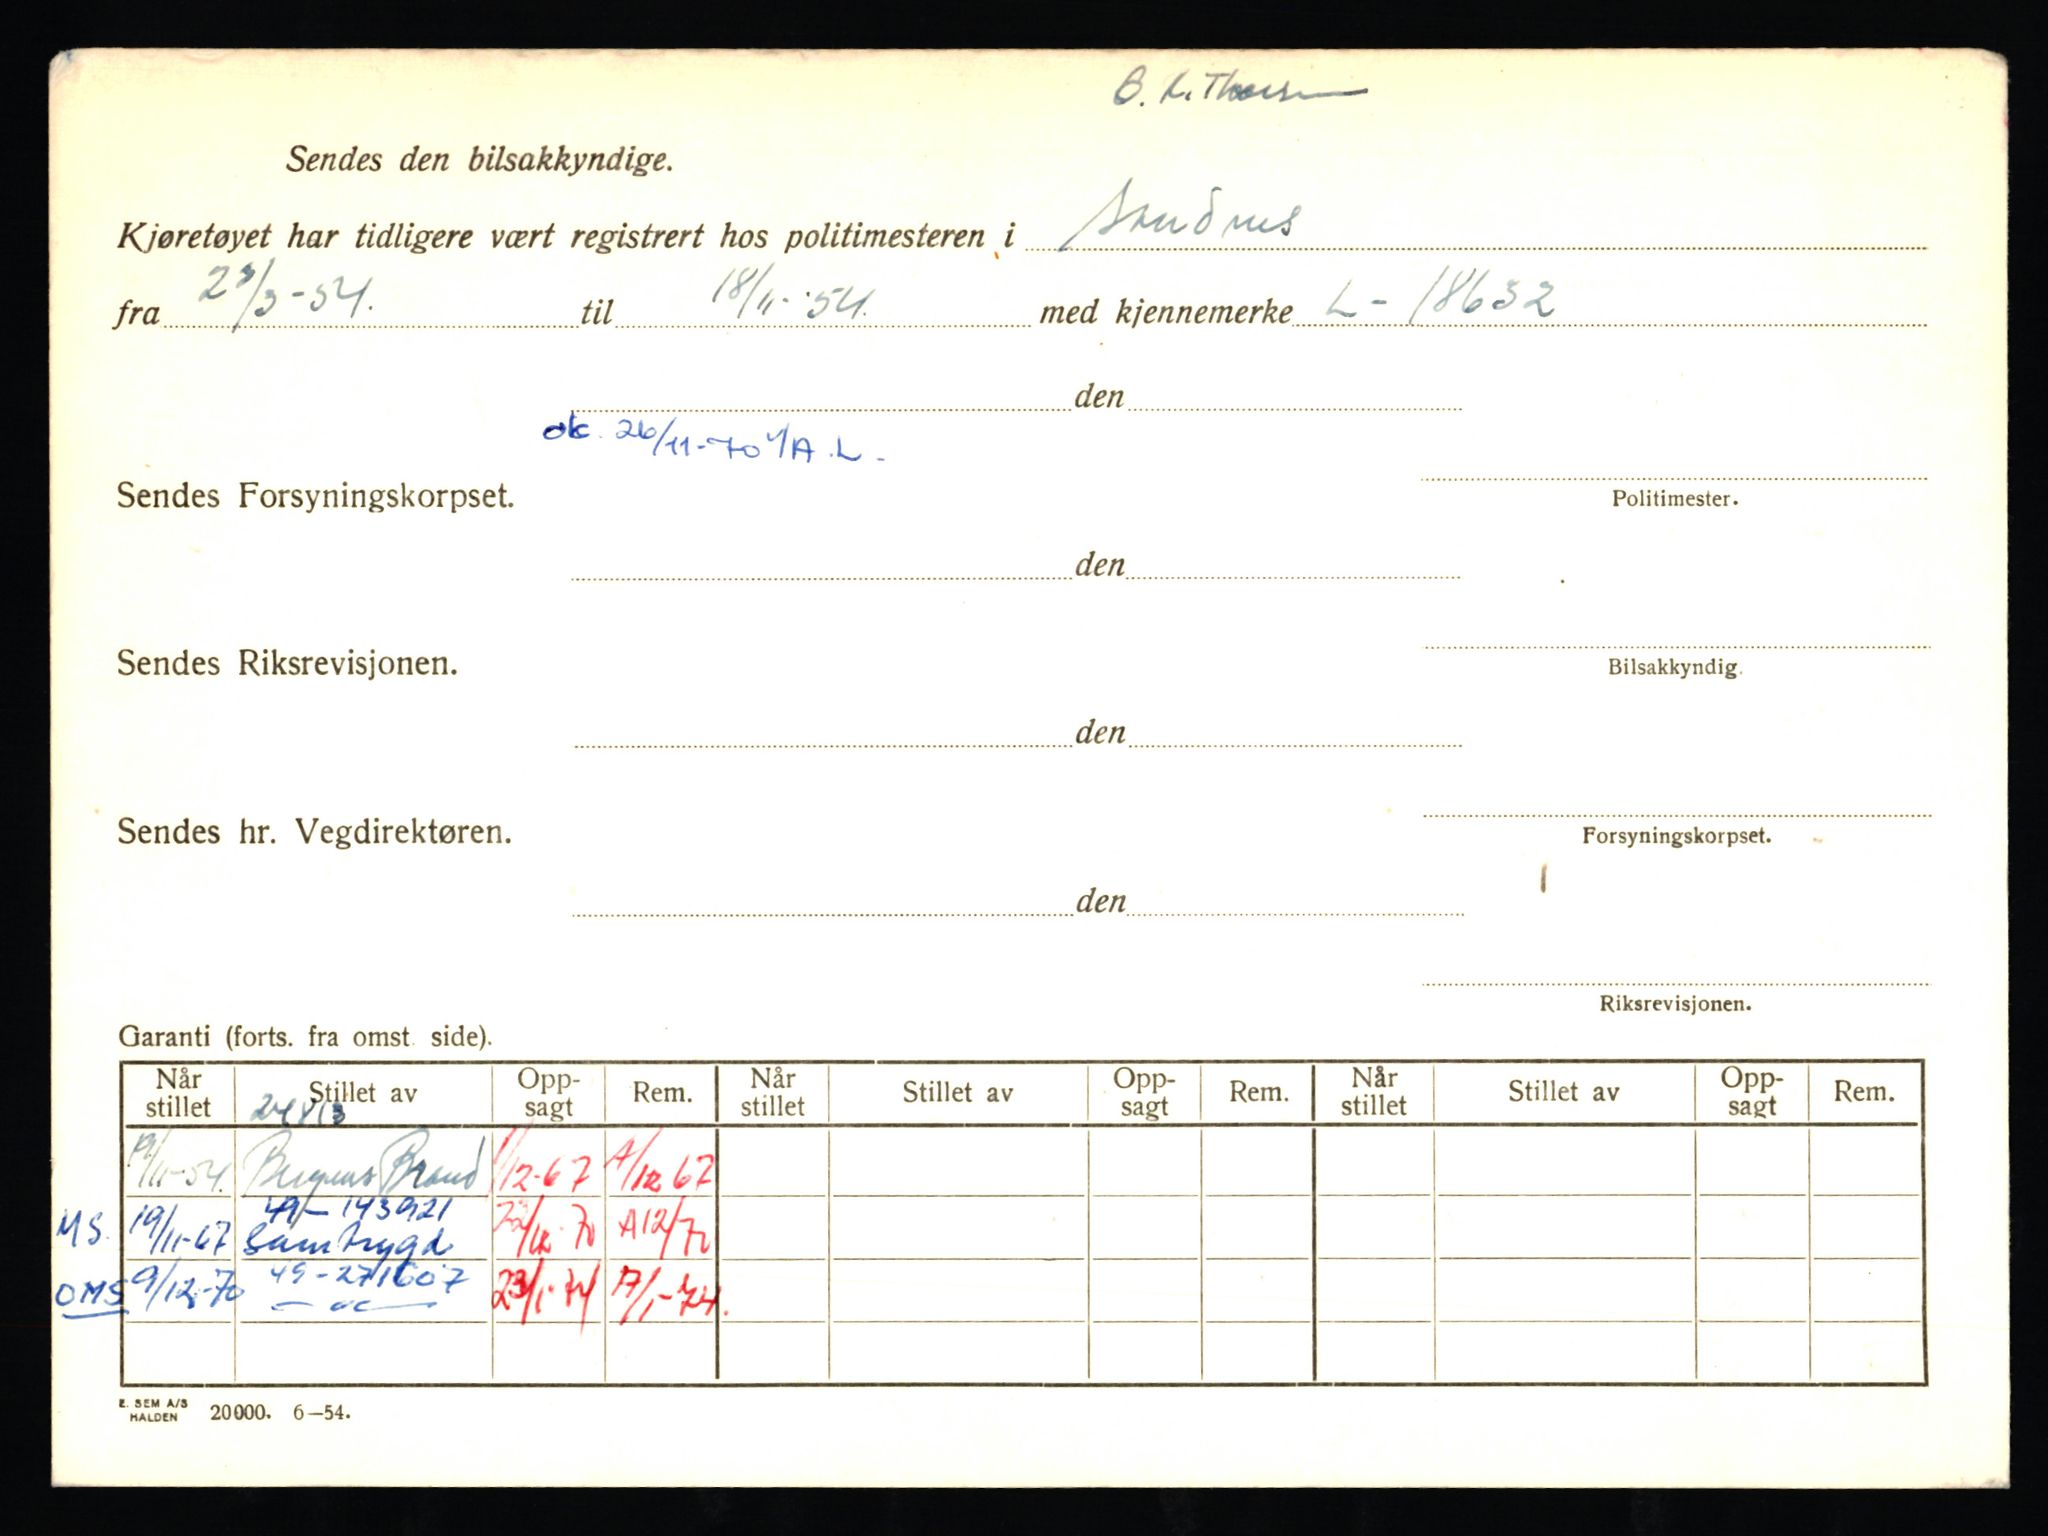 Sendes den bilsakkyndige.
Kjøretøyet har tidligere vært registrert hos politimesteren i Sandnes
fra 23/3-54. til 18/11-54. med kjennemerke L-18632
den
ok. 26/11-70 A.L.
Sendes Forsyningskorpset.
Politimester.
den
Sendes Riksrevisjonen.
Bilsakkyndig.
den
Sendes hr. Vegdirektøren.
Forsyningskorpset.
den
Riksrevisjonen.
Garanti (forts. fra omst. side).
Når stillet Stillet av Opp-sagt Rem. Når stillet Stillet av Opp-sagt Rem. Når stillet Stillet av Opp-sagt Rem.
19/11-54. Bergens Brand 1/12-67 A/12 67
49-143921
MS. 19/11-67 Samtrygd 22/12-70 A12/70
49-271607
OMS 9/12-70 23/1-74 17/1-74.
E. SEM A/S
HALDEN 20000. 6-54.